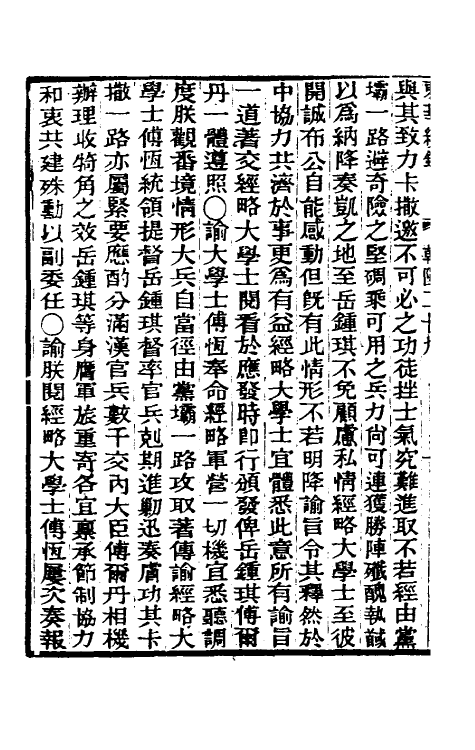 與其致力卡撒邀不可必之功徒挫士氣究難進取不若經由黨
壩一路避奇險之堅碉乘可用之兵力尚可連獲勝陣殲醜執馘
以爲納降奏凱之地至岳鍾琪不免顧慮私情經略大學士至彼
開誠布公自能感動但旣有此情形不若明降諭旨令其釋然於
中協力共濟於事更爲有益經略大學士宜體悉此意所有諭旨
一道著交經略大學士閱看於應發時即行頒發俾岳鍾琪傅爾
丹一體遵照〇諭大學士傅恆奉命經略軍營一切機宜悉聽調
度朕觀番境情形大兵自當徑由黨壩一路攻取著傳諭經略大
學士傅恆統領提督岳鍾琪督率官兵剋期進勦迅奏膚功其卡
撒一路亦屬緊要應酌分滿漢官兵數千交內大臣傅爾丹相機
辦理收犄角之效岳鍾琪等身膺軍旅重寄各宜稟承節制協力
和衷共建殊勳以副委任〇諭朕閱經略大學士傅恆屢次奏報